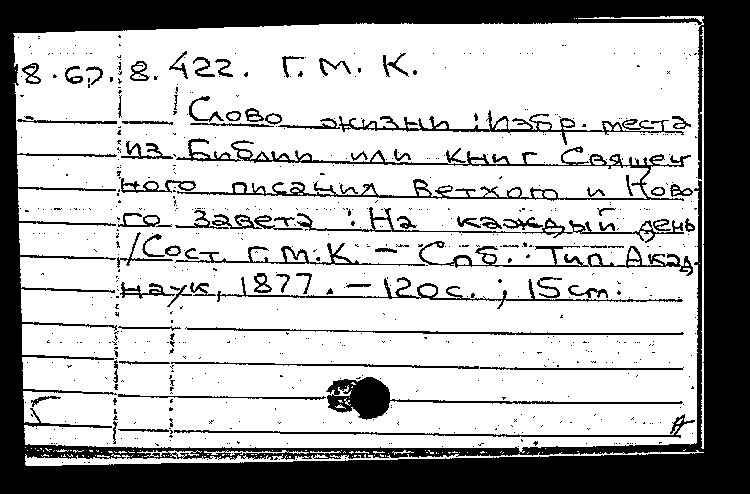 18.67.8.422. Г.М.К.
Слово жизни : Избр. места
из Библии или книг Священ
ного писания Ветхого и Ново-
го завета : На каждый день
/Сост. Г.М.К. – Спб. : Тип. Акад.
наук, 1877. – 120с. ; 15см.